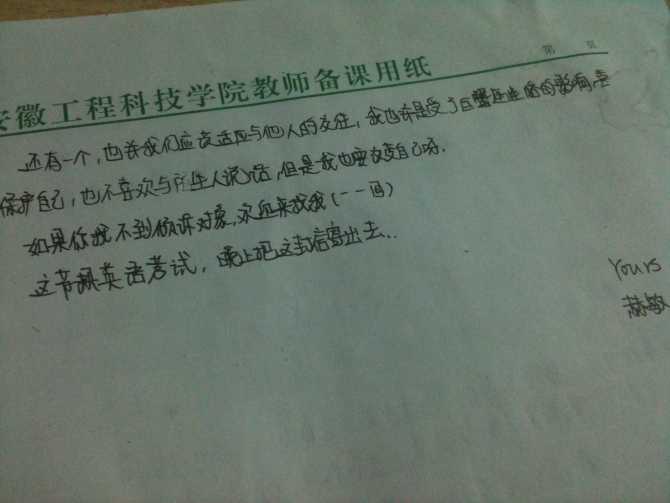 安徽工程科技学院教师备课用纸
第 页
还有一个,也许我们应该适应与他人的交往,我也许是受了巨蟹座性格的影响,喜
保护自己,也不喜欢与陌生人说话,但是我也要改变自己呀.
如果你找不到倾诉对象,欢迎来找我(一一
这节课英语考试,晚上把这封信寄出去..
Yours
赫敏